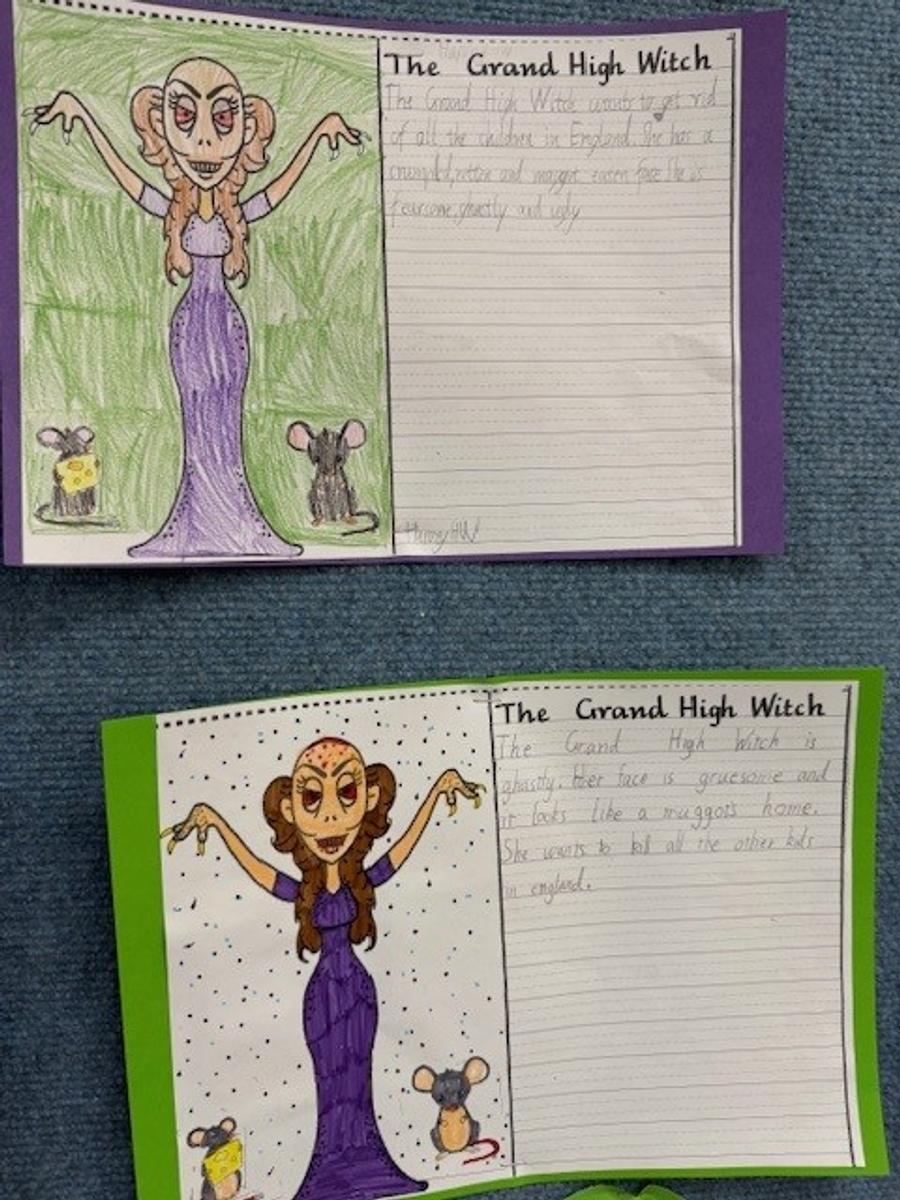 The Grand High Witch
The Grand High Witch wants to get rid
of all the children in England. She has a
crumpled, rotten and maggot eaten face. She is
fearsome, ghastly and ugly
HW
The Grand High Witch
The Grand High Witch is
ghastly. Her face is gruesome and
it looks like a maggots home.
She wants to kill all the other kids
in england.